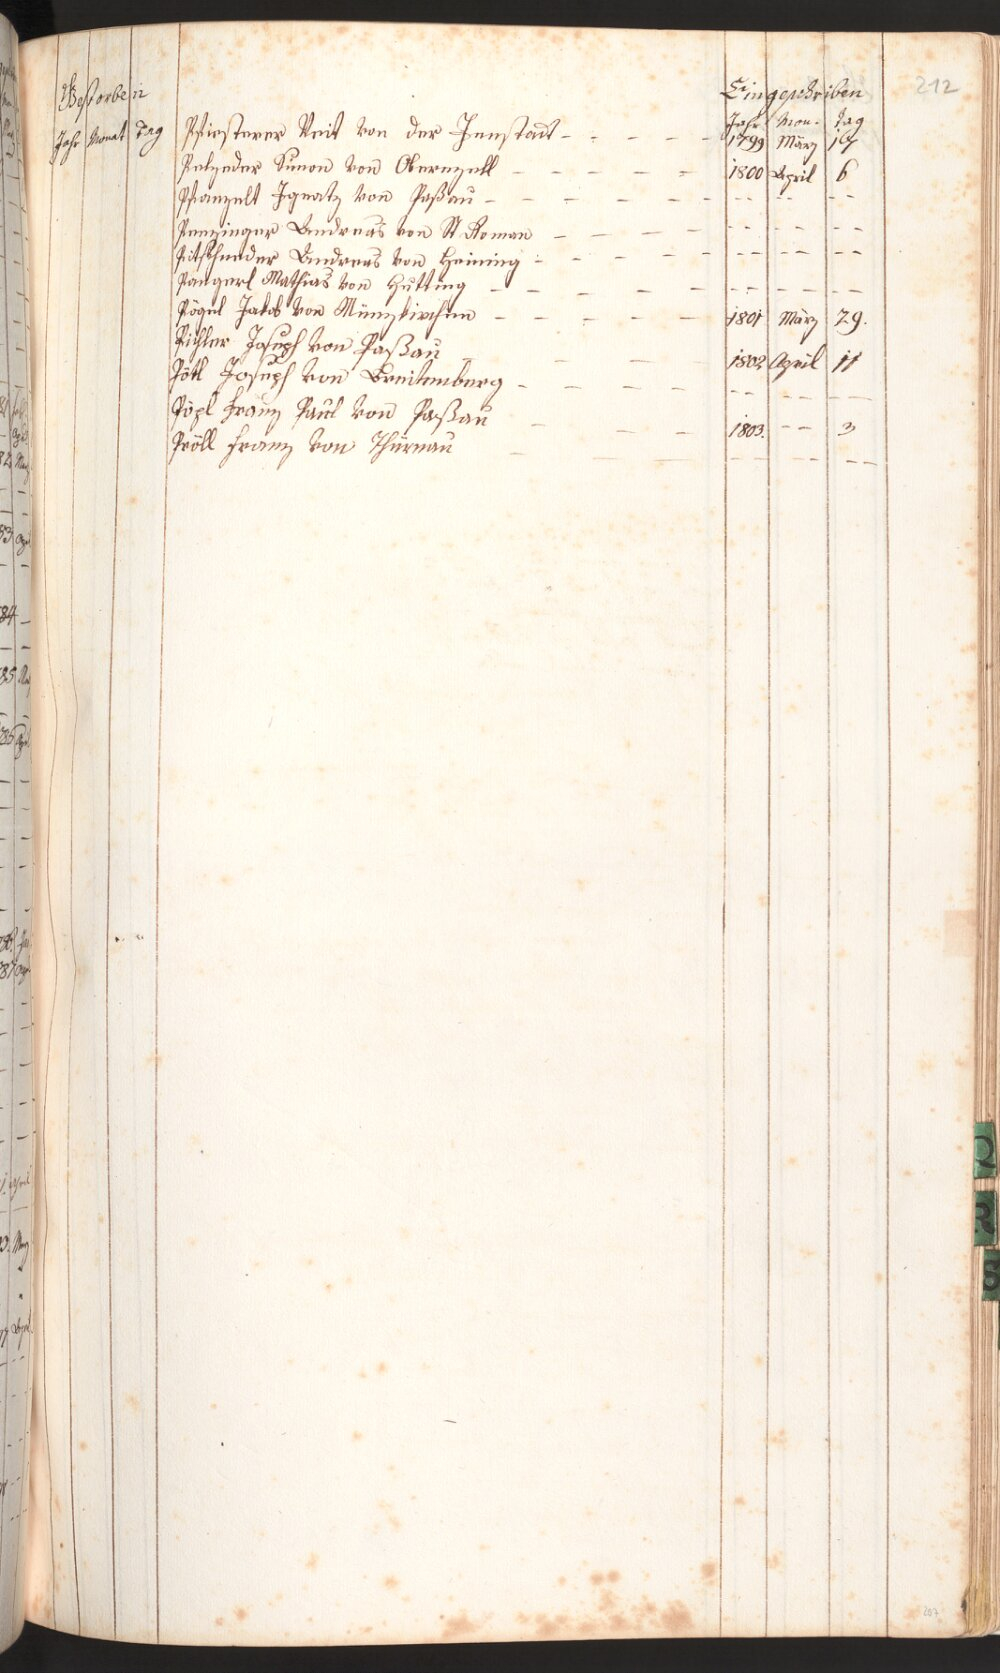 Gestorben Eingeschriben 212
Jahr Monat Tag Jahr Mon. Tag
Pfiesterer Veit von der Innstadt - - - - - 1799 März 17
Petzeder Simon von Obernzell - - - - - 1800 April 6
Pfanzelt Ignatz von Paßau - - - - - - -- -- --
Penzinger Andreas von St Roman - - - - -- -- --
Andreas von Heining - - - - - -- -- --
Pangerl Mathias von Hutting - - - - - -- -- --
Pögel Jakob von Münzkirchen - - - - - 1801 März 29.
Pichler Joseph von Paßau - - - - 1802 April 11
Pötl Joseph von Breitenberg - - - - - -- -- --
Pöpl Franz Paul von Paßau - - - 1803. -- 3
Pröll Franz von Thurnau - - - - -- -- --
Q
R
S
207